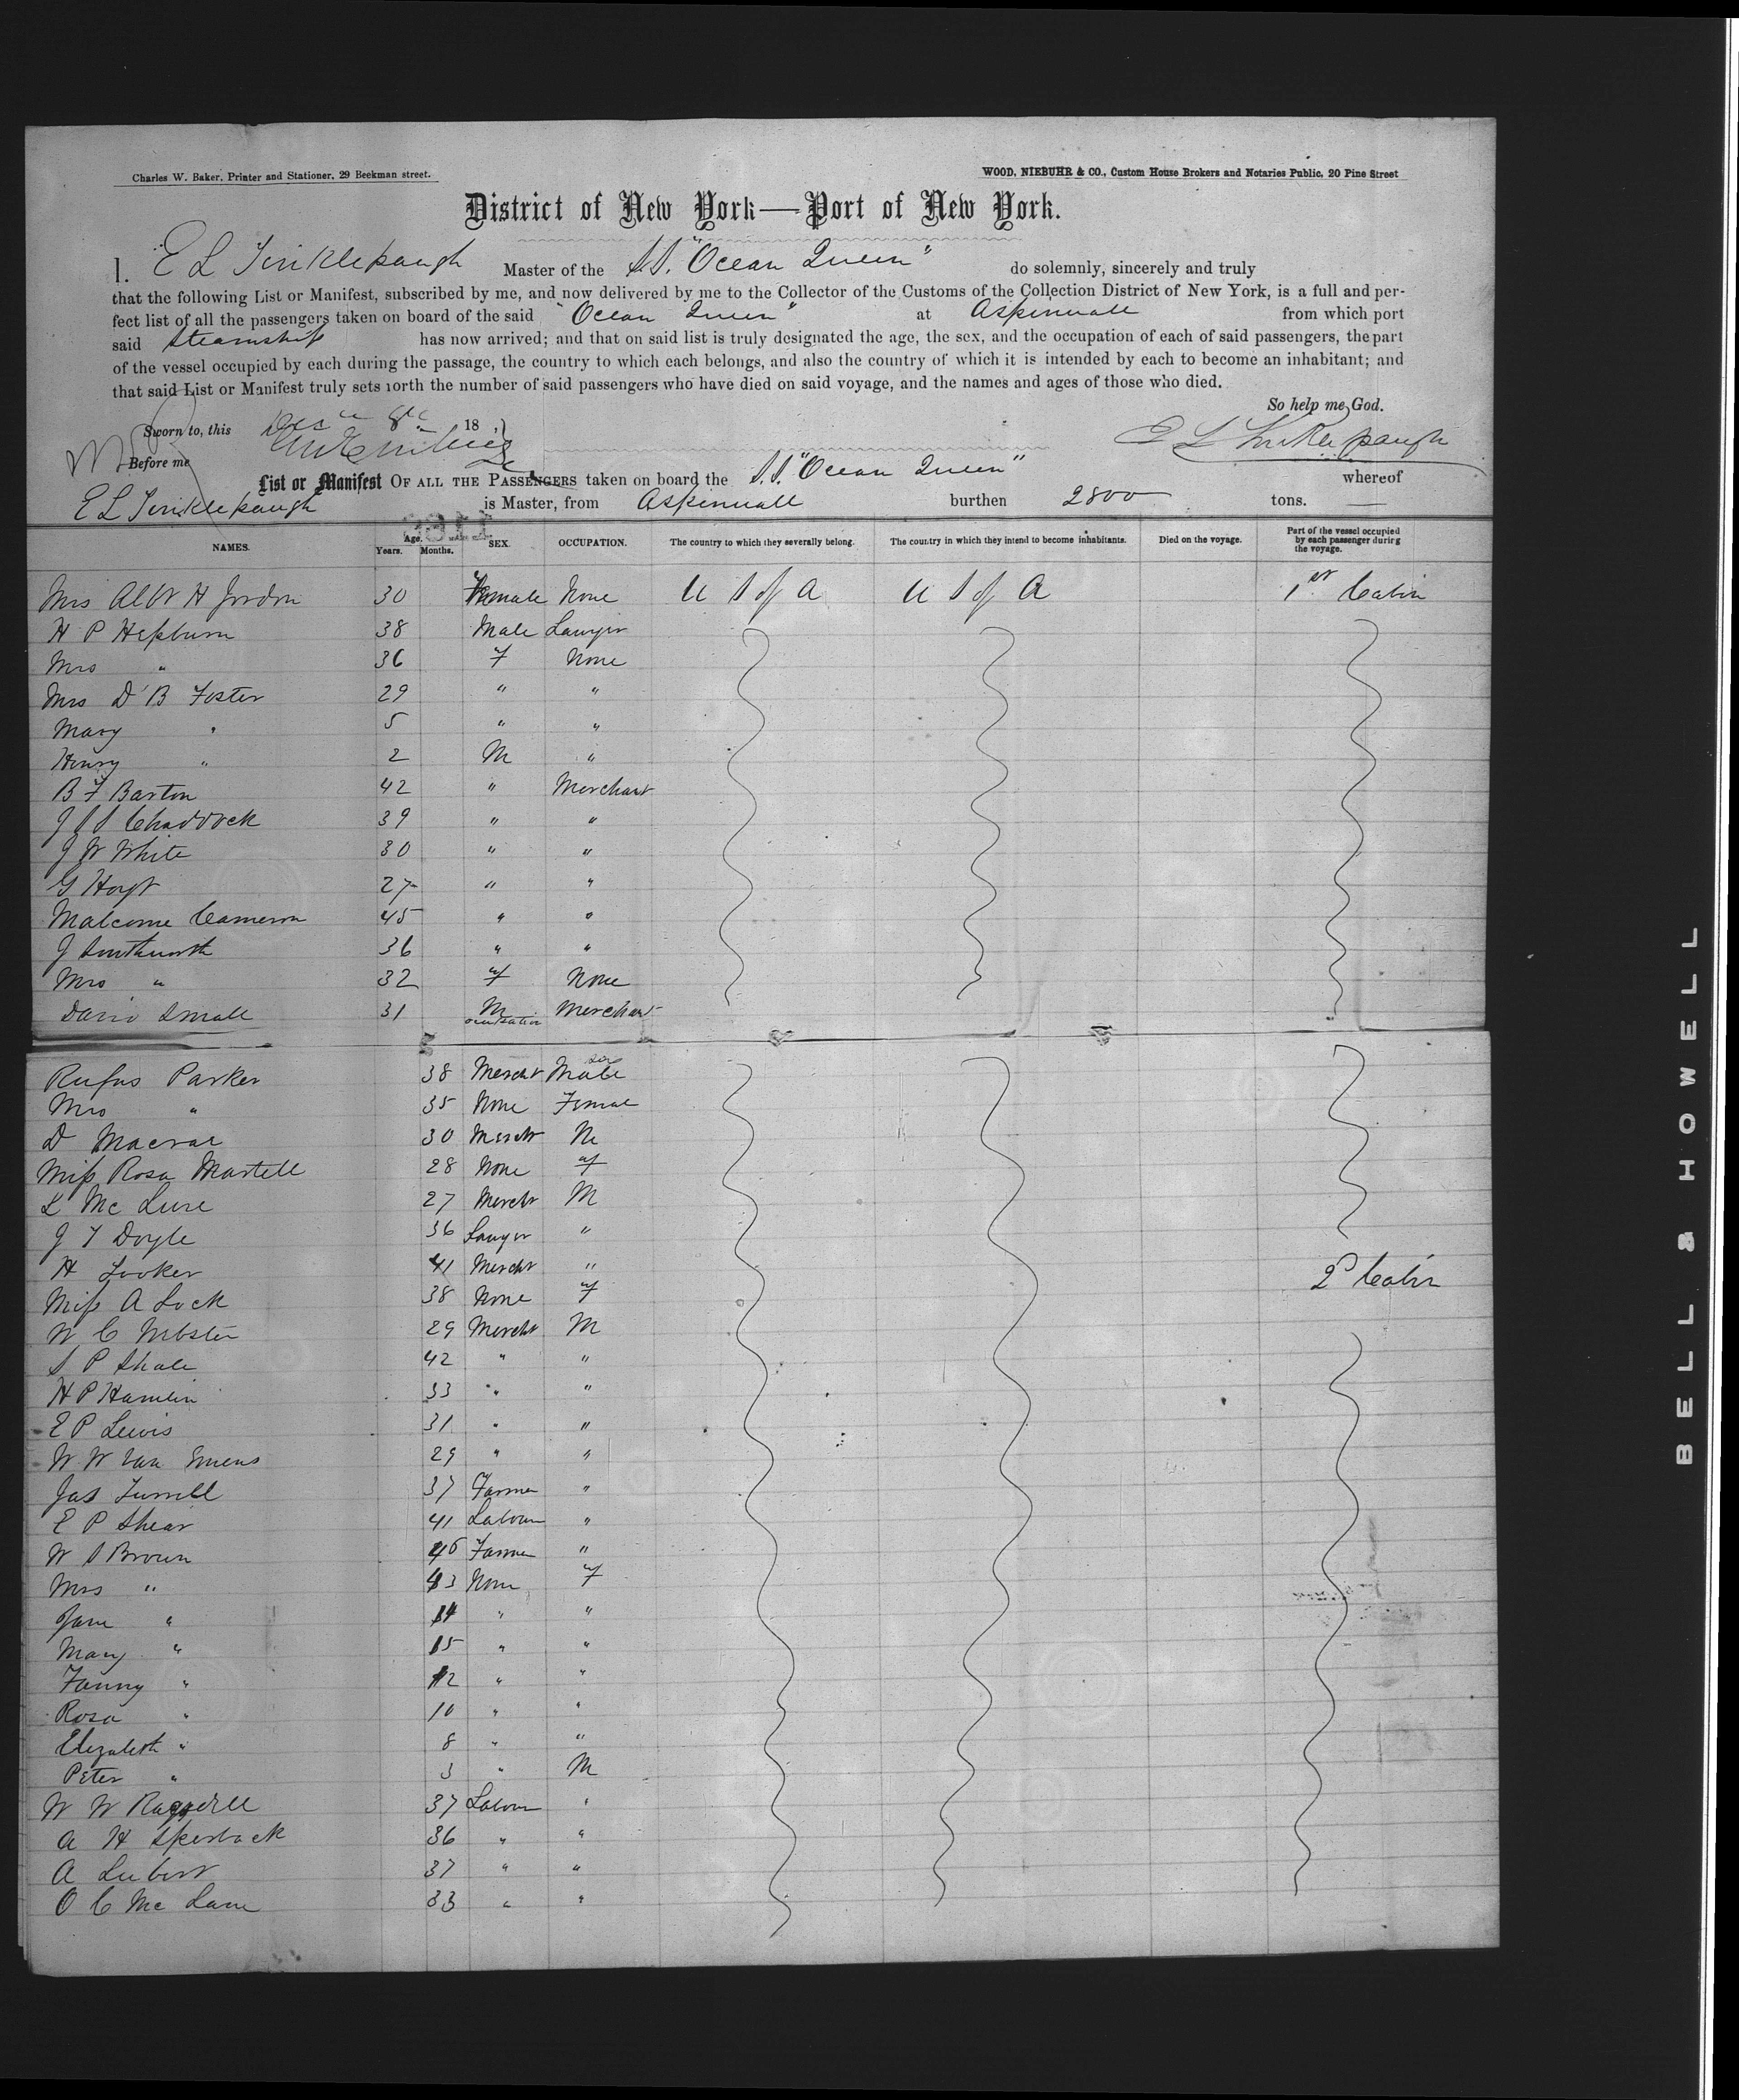 Charles W. Baker, Printer and Stationer, 29 Beekman street.
WOOD, NIEBUHR & CO., Custom House Brokers and Notaries Public, 20 Pine Street
District of New York—Port of New York.
I. E L Tinklepaugh Master of the S.S. "Ocean Queen" do solemnly, sincerely and truly
that the following List or Manifest, subscribed by me, and now delivered by me to the Collector of the Customs of the Collection District of New York, is a full and per-
fect list of all the passengers taken on board of the said "Ocean Queen" at Aspinwall from which port
said Steamship has now arrived; and that on said list is truly designated the age, the sex, and the occupation of each of said passengers, the part
of the vessel occupied by each during the passage, the country to which each belongs, and also the country of which it is intended by each to become an inhabitant; and
that said List or Manifest truly sets forth the number of said passengers who have died on said voyage, and the names and ages of those who died.
So help me God.
Sworn to, this Dec 8th 18 ,
E L Tinklepaugh
Before me
List or Manifest OF ALL THE PASSENGERS taken on board the S.S. "Ocean Queen" whereof
E L Tinklepaugh is Master, from Aspinwall burthen 2800 tons.
NAMES. Age. Years. Months. SEX. OCCUPATION. The country to which they severally belong. The country in which they intend to become inhabitants. Died on the voyage. Part of the vessel occupied by each passenger during the voyage.
Mrs Albt H Jordon 30 Female None U S of A U S of A 1st Cabin
H P Hepburn 38 Male Lawyer
Mrs " 36 F None
Mrs D B Foster 29 " "
Mary " 5 " "
Henry " 2 M "
B F Barton 42 " Merchant
J S S Chaddock 39 " "
J W White 30 " "
G Hoyt 27 " "
Malcome Cameron 45 " "
J Southworth 36 " "
Mrs " 32 F None
David Small 31 M Merchant
occupation sex
Rufus Parker 38 Mercht Male
Mrs " 35 None Female
D Macrae 30 Mercht M
Miss Rosa Martell 28 None F
L Mc Lure 27 Mercht M
J T Doyle 36 Lawyer "
H Looker 41 Mercht " 2d Cabin
Miss A Lock 38 None F
W C Webster 29 Mercht M
S P Shale 42 " "
H P Hamlin 33 " "
E P Lewis 31 " "
W W Van 29 " "
Jas 37 Farmer "
E P Shear 41 Labour "
W S Brown 46 Farmer "
Mrs " 43 None F
Jane " 14 " "
Mary " 15 " "
Fanny " 12 " "
Rosa " 10 " "
Elizabeth " 8 " "
Peter " 3 " M
W W 37 Labour "
A H Sperback 36 " "
A Lubert 37 " "
O C Mc Lane 33 " "
BELL & HOWELL